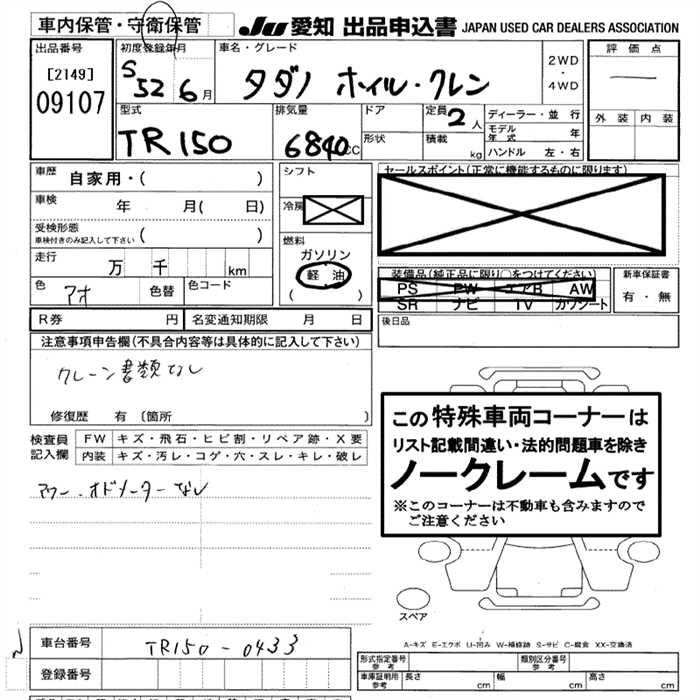 車内保管・守衛保管
JU 愛知 出品申込書 JAPAN USED CAR DEALERS ASSOCIATION
出品番号
[2149]
09107
初度登録年月
S 52 6月
車名・グレード
タダノ ホイル・クレン
2WD
・
4WD
評価点
外装 内装
型式
TR150
排気量
6840cc
ドア
形状
定員 2人
積載 kg
ディーラー・並行
モデル年式 年
ハンドル 左・右
車歴 自家用・( )
車検 年 月( 日)
受検形態
車検付きのみ記入して下さい ( )
走行 万 千 km
色 アオ 色替 色コード
R券 円 名変通知期限 月 日
シフト
冷房
燃料
ガソリン
軽油
( )
セールスポイント(正常に機能するものに限ります)
装備品(純正品に限り○をつけてください)
PS PW エアB AW
SR ナビ TV カワシート
新車保証書
有・無
後日品
注意事項申告欄(不具合内容等は具体的に記入して下さい)
クレーン書類なし
修復歴 有 (箇所 )
検査員記入欄
FW キズ・飛石・ヒビ割・リペア跡・X要
内装 キズ・汚レ・コゲ・穴・スレ・キレ・破レ
アワー・オドメーターなし
この特殊車両コーナーは
リスト記載間違い・法的問題車を除き
ノークレームです
※このコーナーは不動車も含みますので
ご注意ください
スペア
A-キズ E-エクボ U-凹み W-補修跡 S-サビ C-腐食 XX-交換済
車台番号 TR150-0433
登録番号
形式指定番号 参考
類別区分番号 参考
車庫証明用 参考 長さ cm 幅 cm 高さ cm